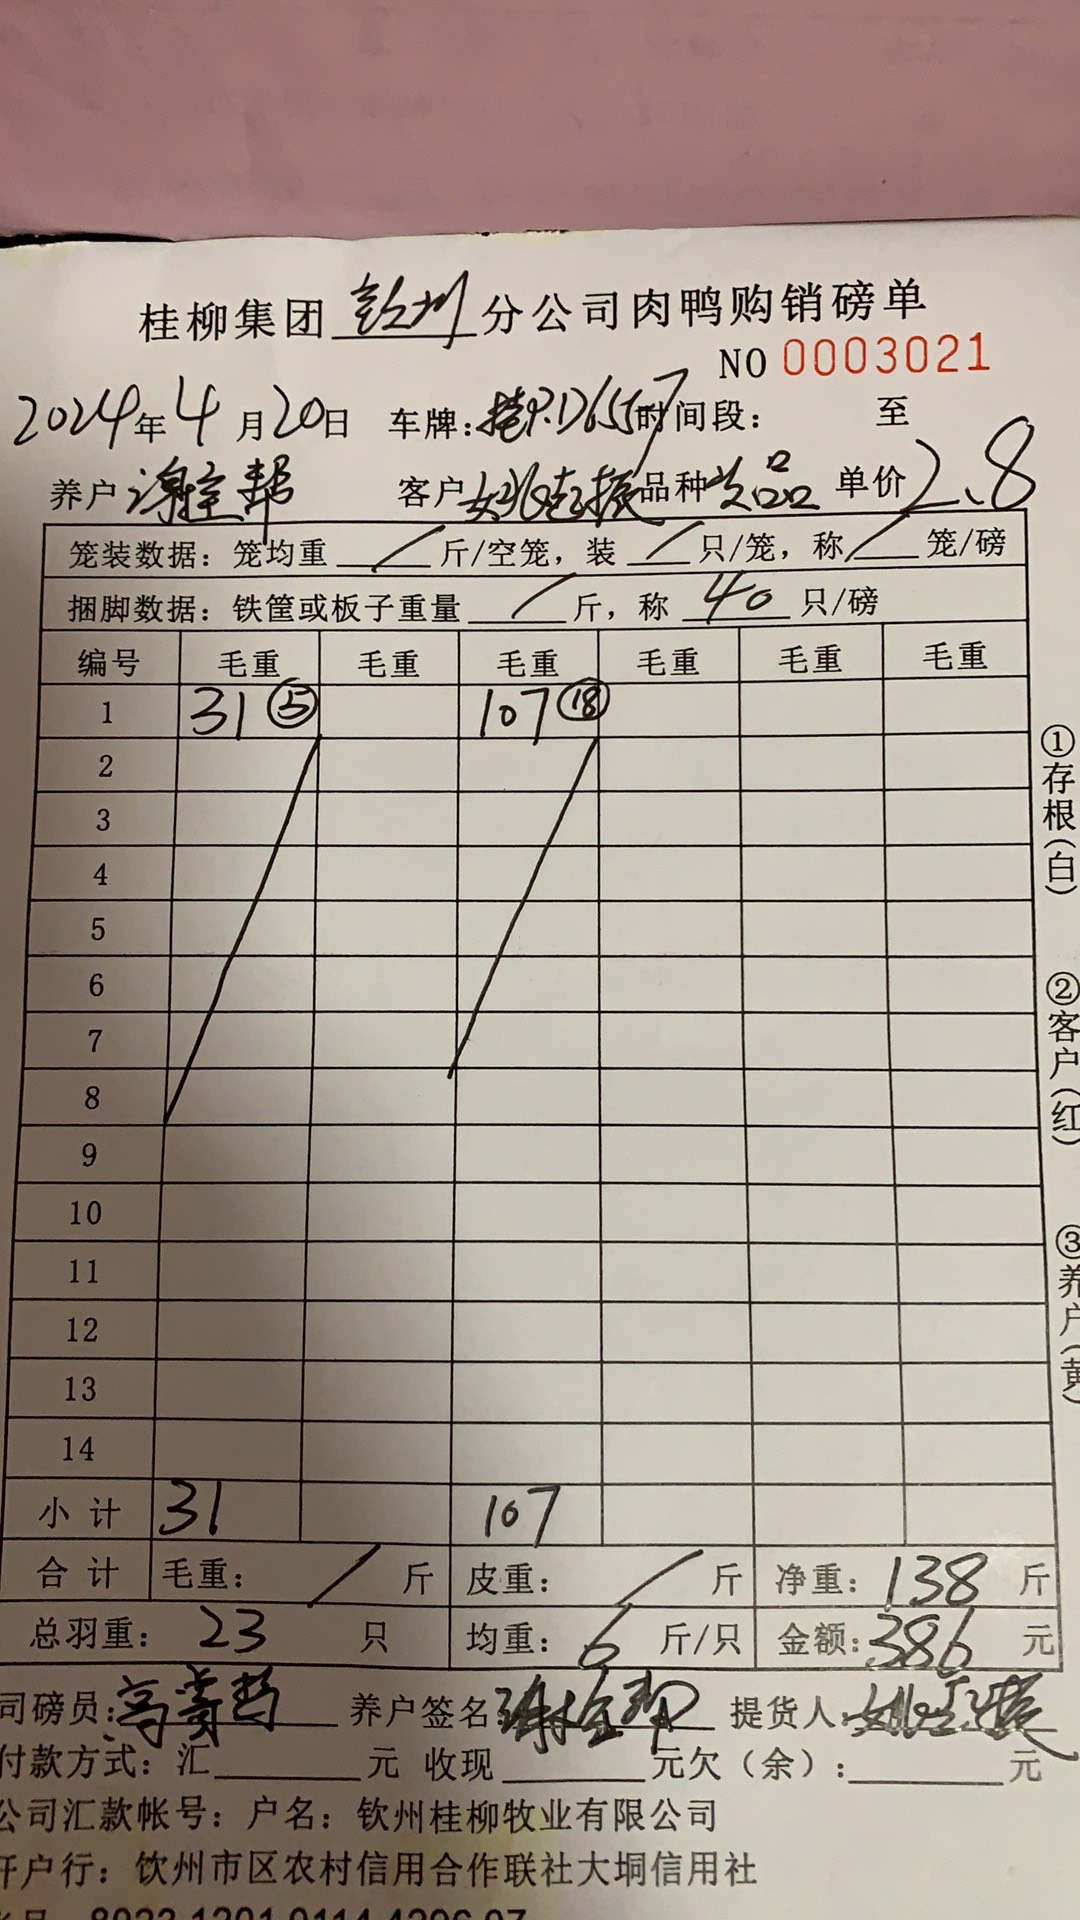 桂柳集团钦州分公司肉鸭购销磅单
NO 0003021
2024年4月20日 车牌: D6557时间段: 至
养户 客户姚 振 品种次品 单价2.8
笼装数据: 笼均重 / 斤/空笼, 装 / 只/笼, 称 / 笼/磅
捆脚数据: 铁筐或板子重量 / 斤, 称 40 只/磅
编号 毛重 毛重 毛重 毛重 毛重 毛重
1 31 ⑤ 107 ⑱
2
3
4
5
6
7
8
9
10
11
12
13
14
小计 31 107
合计 毛重: / 斤 皮重: / 斤 净重: 138 斤
总羽重: 23 只 均重: 6 斤/只 金额: 386 元
司磅员: 高 养户签名 提货人: 姚 振
付款方式: 汇 元 收现 元欠(余): 元
公司汇款帐号: 户名: 钦州桂柳牧业有限公司
开户行: 钦州市区农村信用合作联社大垌信用社
①存根(白)
②客户(红)
③养户(黄)